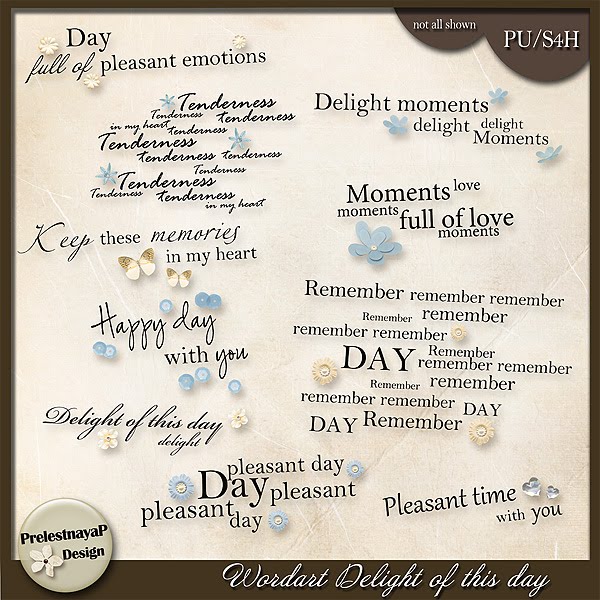 not all shown
PU/S4H
Day
full of pleasant emotions
Tenderness
Tenderness tenderness
in my heart tenderness
Tenderness
tenderness tenderness
Tenderness
Tenderness
Tenderness tenderness
in my heart
Keep these memories
in my heart
Happy day
with you
Delight of this day
delight
Delight moments
delight delight
Moments
Moments love
moments full of love
moments
Remember remember remember
Remember remember
remember remember
DAY Remember
remember remember
Remember remember
remember remember DAY
DAY Remember
pleasant day
Day pleasant
pleasant day
Pleasant time
with you
PrelestnayaP
Design
Wordart Delight of this day